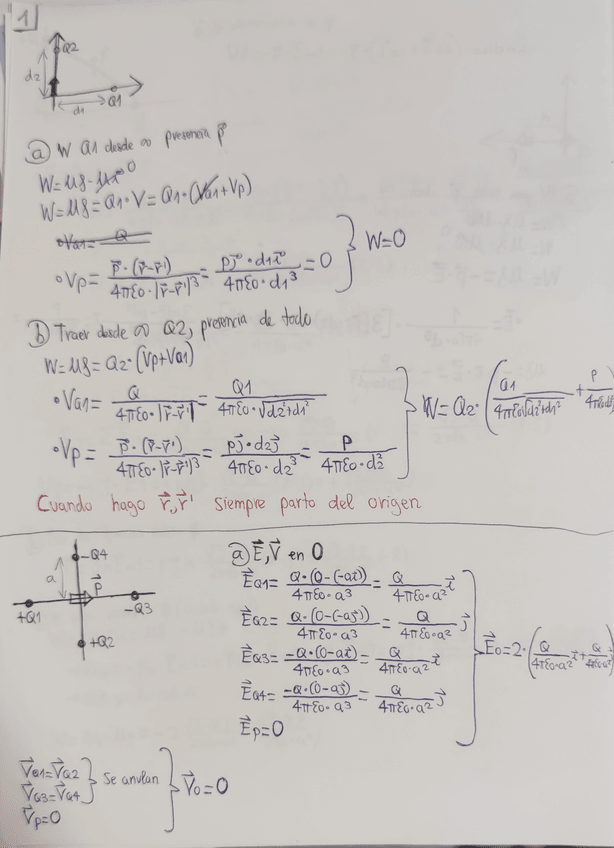 1
Q2
d2
d1
Q1
a) W Q1 desde ∞ presencia p⃗
W=Uf-Ui⁰
W=Uf=Q1·V=Q1·(Va1+Vp)
·Va1= Q
·Vp= p⃗·(r⃗-r⃗')/4πε0·|r⃗-r⃗'|³ = pj⃗·d1i⃗/4πε0·d1³ =0 } W=0
b) Traer desde ∞ Q2, presencia de todo
W=Uf=Q2·(Vp+Va1)
·Va1= Q/4πε0·|r⃗-r⃗'| = Q1/4πε0·√d2²+d1²
·Vp= p⃗·(r⃗-r⃗')/4πε0·|r⃗-r⃗'|³ = pj⃗·d2j⃗/4πε0·d2³ = p/4πε0·d2² } W=Q2·(Q1/4πε0√d2²+d1² + p/4πε0d2²)
Cuando hago r⃗,r⃗' siempre parto del origen
-Q4
a
p⃗
+Q1
-Q3
+Q2
a) E⃗,V⃗ en O
E⃗Q1= Q·(0-(-ai⃗))/4πε0·a³ = Q/4πε0·a² i⃗
E⃗Q2= Q·(0-(-aj⃗))/4πε0·a³ = Q/4πε0·a² j⃗
E⃗Q3= -Q·(0-ai⃗)/4πε0·a³ = Q/4πε0·a² i⃗
E⃗Q4= -Q·(0-aj⃗)/4πε0·a³ = Q/4πε0·a² j⃗
E⃗p=0
} E⃗o=2·(Q/4πε0·a² i⃗+Q/4πε0·a²
V⃗Q1=V⃗Q2
V⃗Q3=V⃗Q4 } Se anulan
V⃗p=0
} V⃗o=0